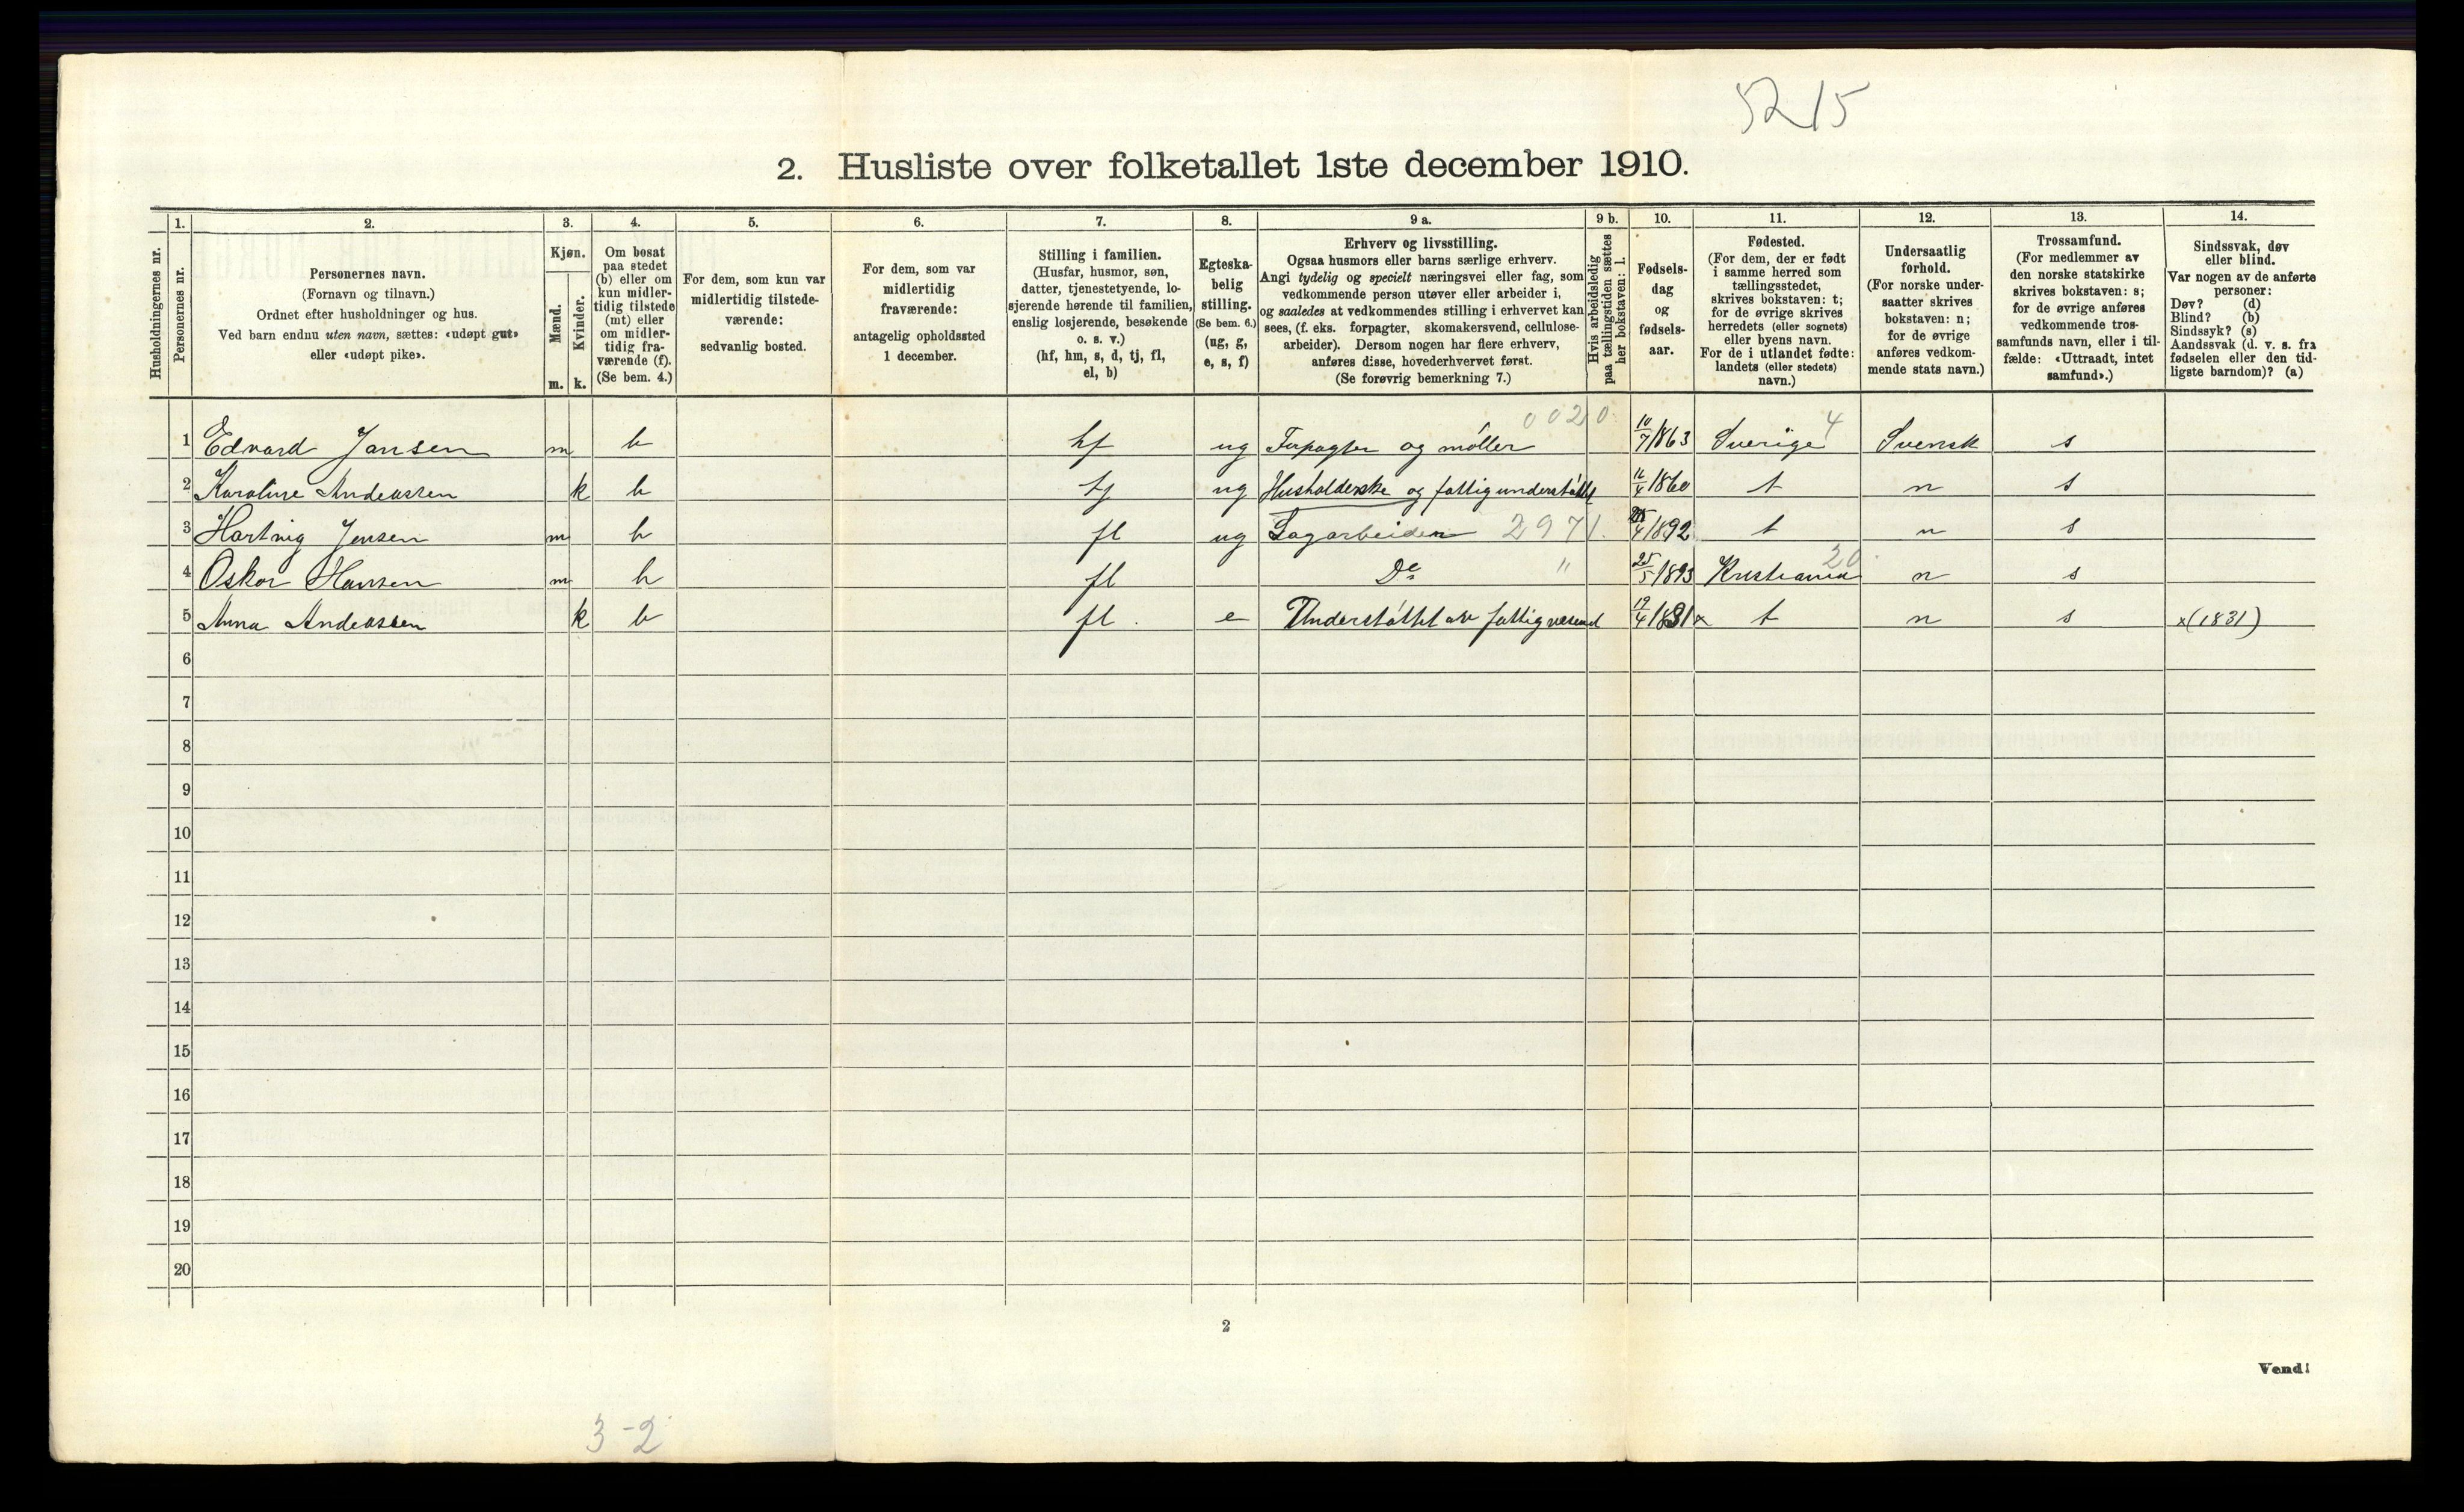 5215
2. Husliste over folketallet 1ste december 1910.
Husholdningernes nr.
1.
Personernes nr.
2.
Personernes navn.
(Fornavn og tilnavn.)
Ordnet efter husholdninger og hus.
Ved barn endnu uten navn, sættes: «udøpt gut»
eller «udøpt pike».
3.
Kjøn.
Mænd.
m.
Kvinder.
k.
4.
Om bosat
paa stedet
(b) eller om
kun midler-
tidig tilstede
(mt) eller
om midler-
tidig fra-
værende (f).
(Se bem. 4.)
5.
For dem, som kun var
midlertidig tilstede-
værende:
sedvanlig bosted.
6.
For dem, som var
midlertidig
fraværende:
antagelig opholdssted
1 december.
7.
Stilling i familien.
(Husfar, husmor, søn,
datter, tjenestetyende, lo-
sjerende hørende til familien,
enslig losjerende, besøkende
o. s. v.)
(hf, hm, s, d, tj, fl,
el, b)
8.
Egteska-
belig
stilling.
(Se bem. 6.)
(ug, g,
e, s, f)
9 a.
Erhverv og livsstilling.
Ogsaa husmors eller barns særlige erhverv.
Angi tydelig og specielt næringsvei eller fag, som
vedkommende person utøver eller arbeider i,
og saaledes at vedkommendes stilling i erhvervet kan
sees, (f. eks. forpagter, skomakersvend, cellulose-
arbeider). Dersom nogen har flere erhverv,
anføres disse, hovederhvervet først.
(Se forøvrig bemerkning 7.)
9 b.
Hvis arbeidsledig
paa tællingstiden sættes
her bokstaven: l.
10.
Fødsels-
dag
og
fødsels-
aar.
11.
Fødested.
(For dem, der er født
i samme herred som
tællingsstedet,
skrives bokstaven: t;
for de øvrige skrives
herredets (eller sognets)
eller byens navn.
For de i utlandet fødte:
landets (eller stedets)
navn.)
12.
Undersaatlig
forhold.
(For norske under-
saatter skrives
bokstaven: n;
for de øvrige
anføres vedkom-
mende stats navn.)
13.
Trossamfund.
(For medlemmer av
den norske statskirke
skrives bokstaven: s;
for de øvrige anføres
vedkommende tros-
samfunds navn, eller i til-
fælde: «Uttraadt, intet
samfund».)
14.
Sindssvak, døv
eller blind.
Var nogen av de anførte
personer:
Døv? (d)
Blind? (b)
Sindssyk? (s)
Aandssvak (d. v. s. fra
fødselen eller den tid-
ligste barndom)? (a)
0020
1 Edvard Jansen m b hf ug Forpagter og møller 10/7 1863 Sverige 4 Svensk s
2 Karoline Andeassen k b tj ug Husholderske og fattigunderstøttet 1860 t n s
3 Hartvig Jensen m b fl ug Sagarbeider 2971. 1892 t n s
4 Oskar Hansen m b fl Do " 25/5 1893 Kristiania 20 n s
5 Anna Andeassen k b fl. e Understøttet av fattigvesend 19/4 1831 x t n s x(1831)
6
7
8
9
10
11
12
13
14
15
16
17
18
19
20
2
Vend!
3-2